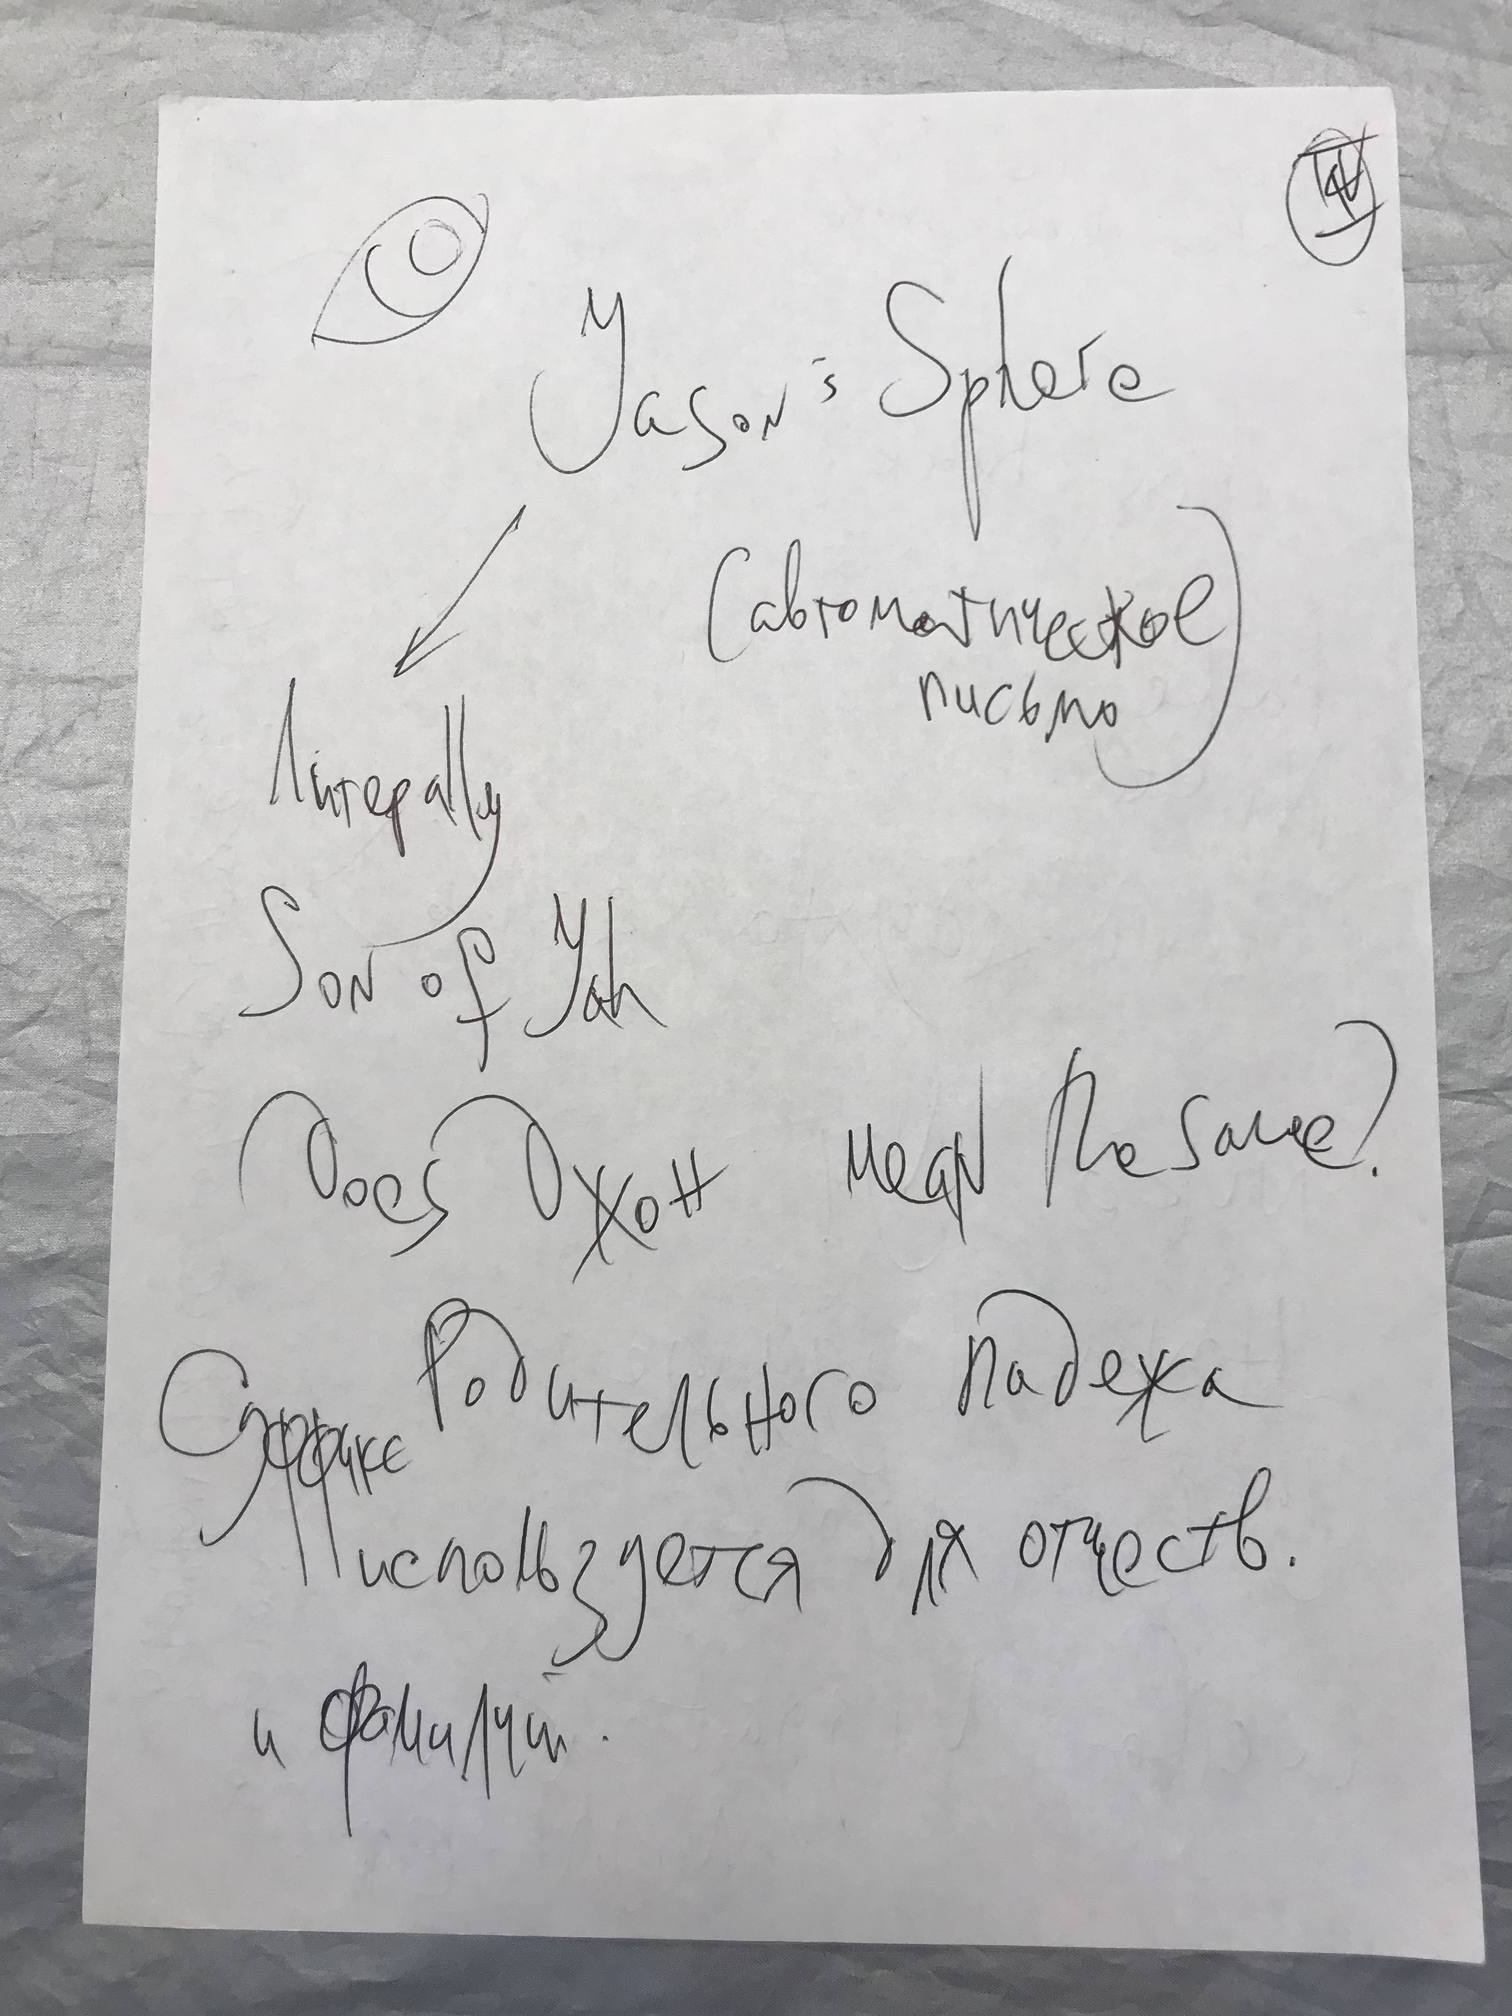 Yason's Sphere
(автоматическое
письмо)
Литерally
Son of Yah
Does Джон mean the same?
Суффикс Родительного падежа
используется для отчеств.
и фамилий.